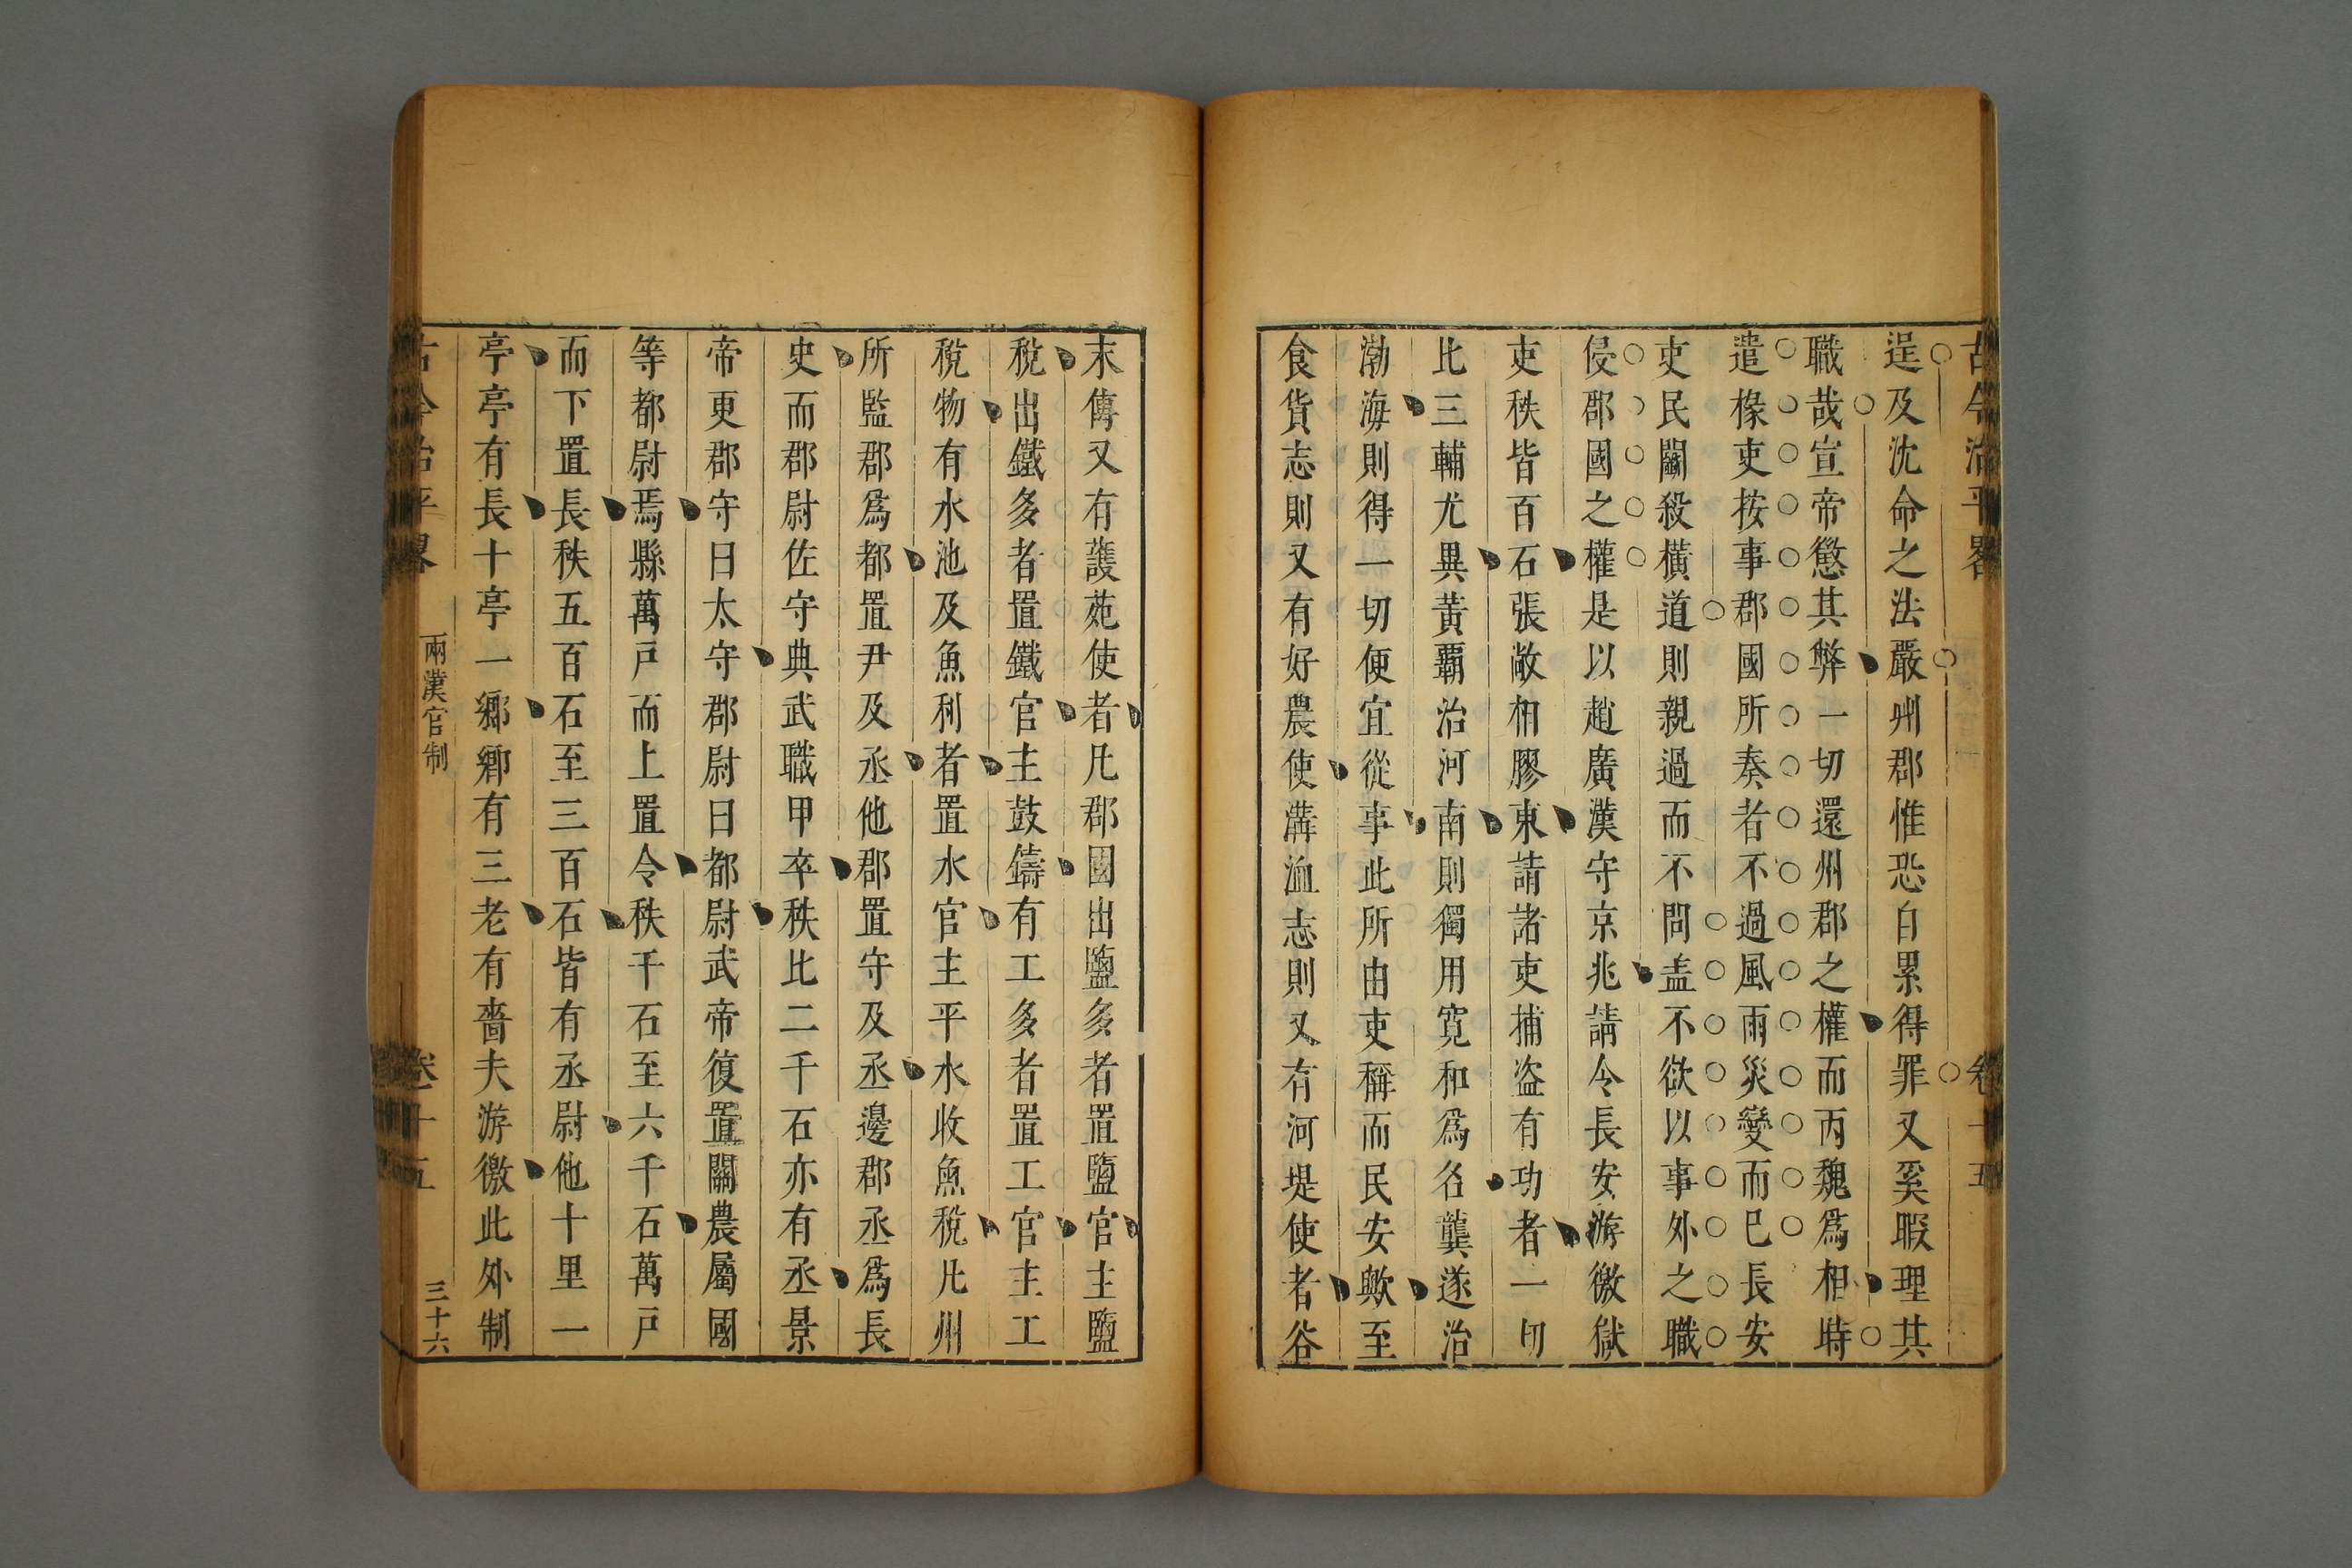 古今治平畧 卷十五
逞及沈命之法嚴州郡惟恐自累得罪又奚暇理其
職哉宣帝懲其弊一切還州郡之權而丙魏爲相時
遣椽吏按事郡國所奏者不過風雨災變而巳長安
吏民鬭殺橫道則親過而不問盖不欲以事外之職
侵郡國之權是以趙廣漢守京兆請令長安游徼獄
吏秩皆百石張敞相膠東請諸吏捕盜有功者一切
比三輔尤異黃霸治河南則獨用寬和爲名龔遂治
渤海則得一切便宜從事此所由吏稱而民安歟至
食貨志則又有好農使溝洫志則又有河堤使者谷
末傳又有護苑使者凡郡國出鹽多者置鹽官主鹽
稅出鐵多者置鐵官主鼓鑄有工多者置工官主工
稅物有水池及魚利者置水官主平水收魚稅凡州
所監郡爲都置尹及丞他郡置守及丞邊郡丞爲長
史而郡尉佐守典武職甲卒秩比二千石亦有丞景
帝更郡守曰太守郡尉曰都尉武帝復置關農屬國
等都尉焉縣萬戸而上置令秩千石至六千石萬戸
而下置長秩五百石至三百石皆有丞尉他十里一
亭亭有長十亭一鄉鄉有三老有嗇夫游徼此外制
古今治平畧 兩漢官制 卷十五 三十六